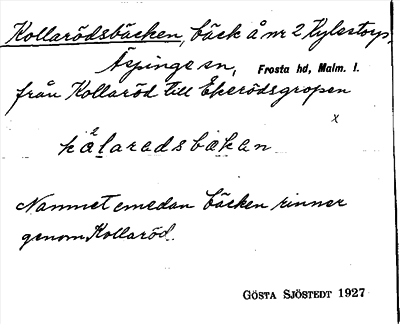 Kollarödsbäcken, bäck å nr 2 Kylestorp,
Äspinge sn, Frosta hd, Malm. l.
från Kollaröd till Ekerödsgropen
x
kålaradsbakan
Namnet emedan bäcken rinner
genom Kollaröd.
GÖSTA SJÖSTEDT 1927